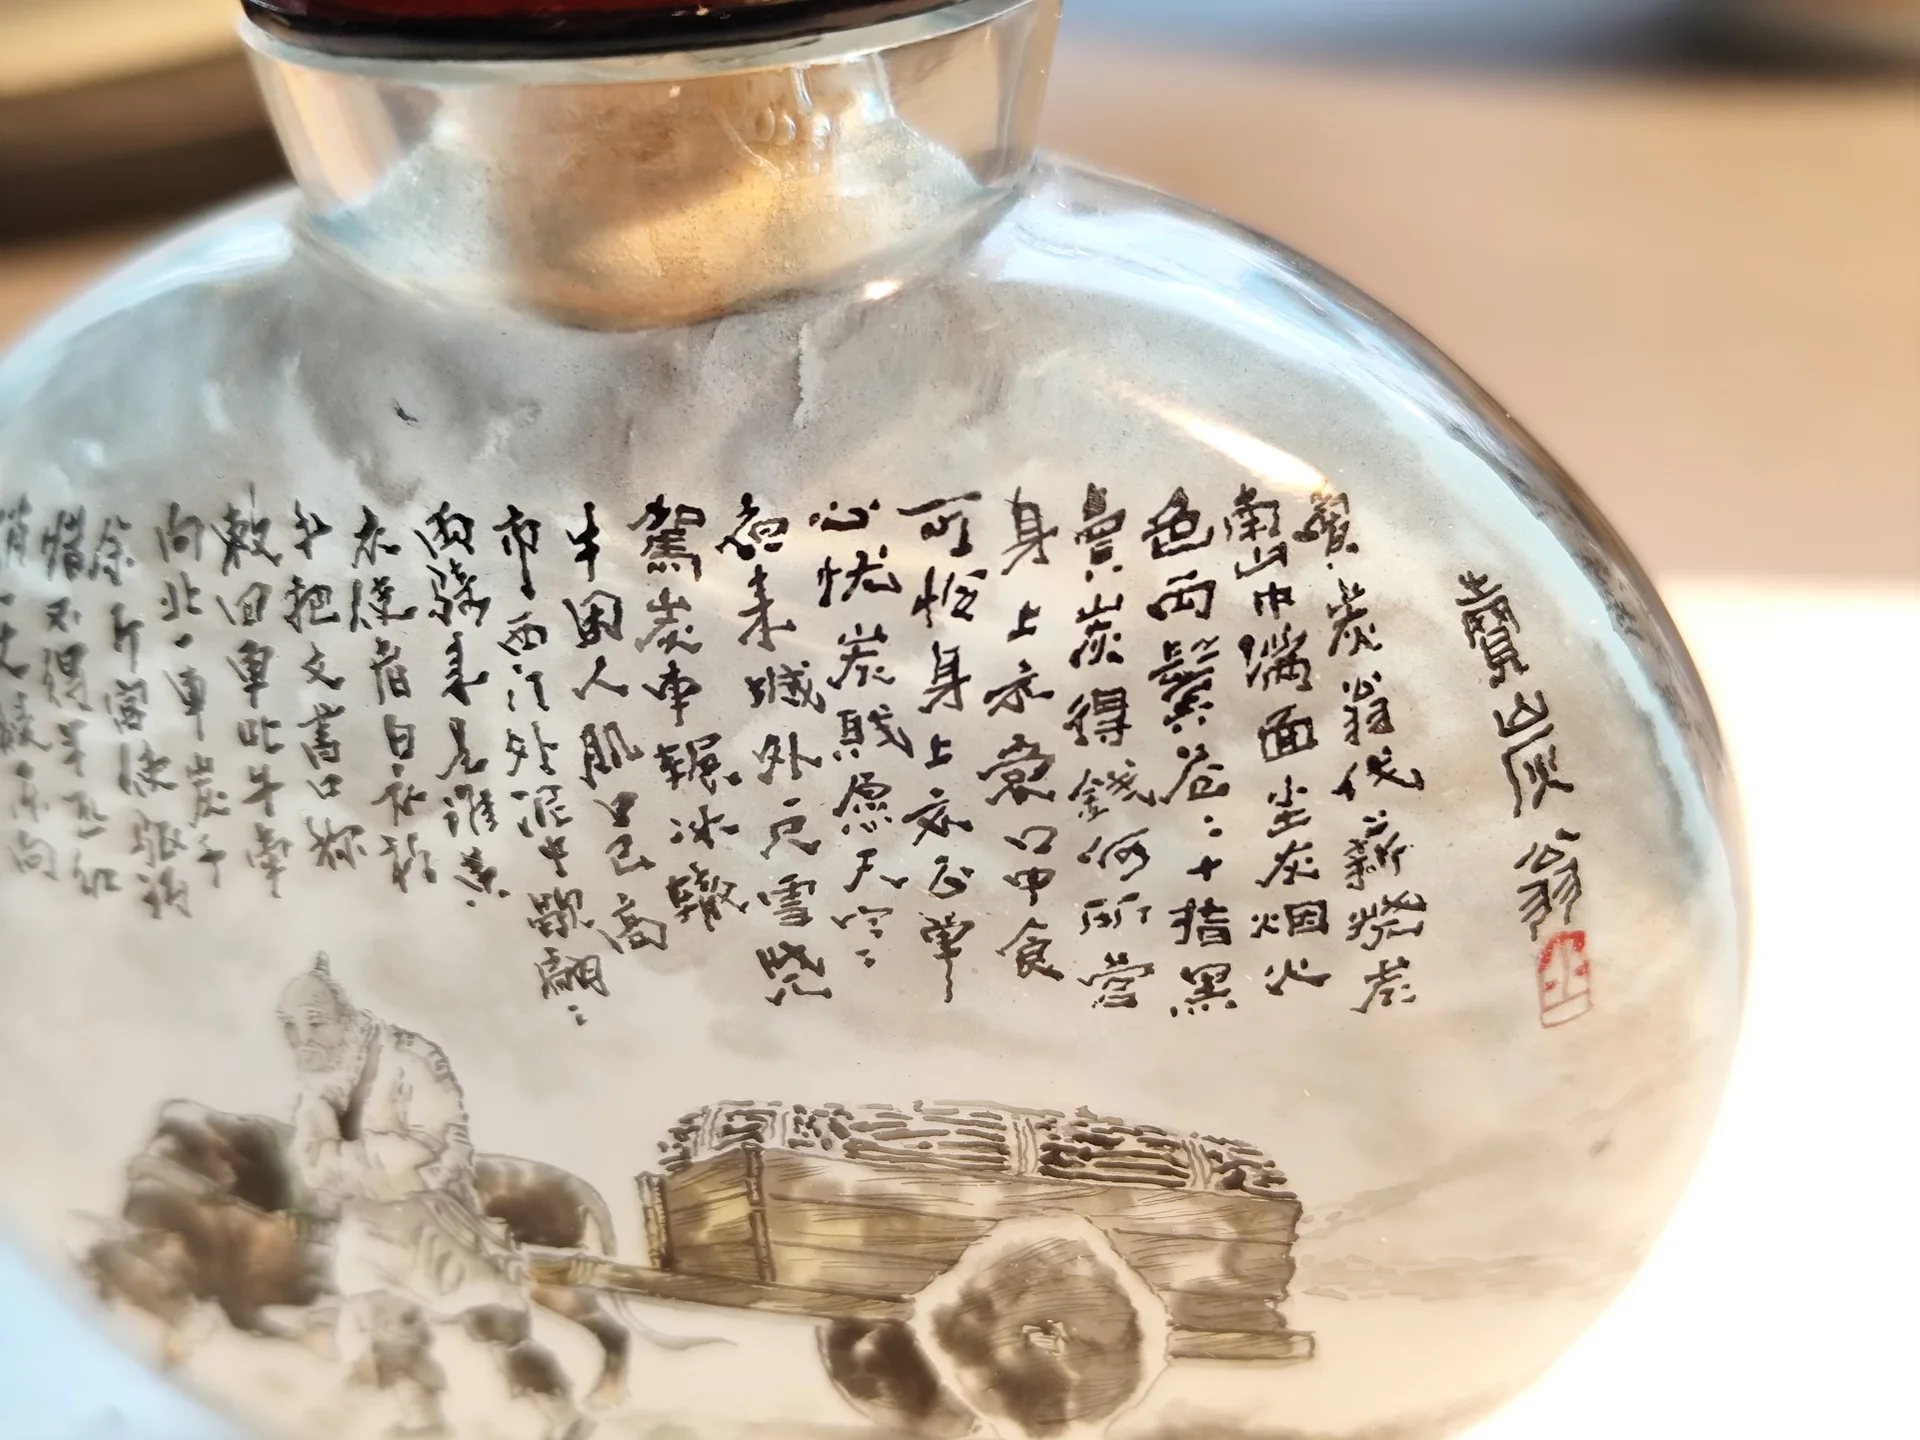 賣炭翁
賣炭翁伐薪燒炭
南山中滿面尘灰烟火
色两鬓苍〻十指黑
賣炭得錢何所營
身上衣裳口中食
可怜身上衣正單
心忧炭賤愿天寒
夜来城外一尺雪曉
駕炭車輾冰轍
牛困人肌日已高
市西门外泥中歇翩〻
两骑来是谁黄
衣使者白衣衫
手把文書口称
敕回車叱牛牽
向北一車炭千
余斤宫使驱将
惜不得半匹红
绡一丈绫系向